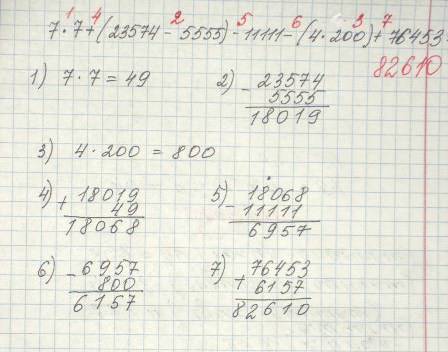 1 4 2 5 6 3 7
7·7+(23574-5555)-11111-(4·200)+76453
82610
1) 7·7=49
2) -23574
5555
18019
3) 4·200=800
4) +18019
49
18068
5) -18068
11111
6957
6) -6957
800
6157
7) +76453
6157
82610